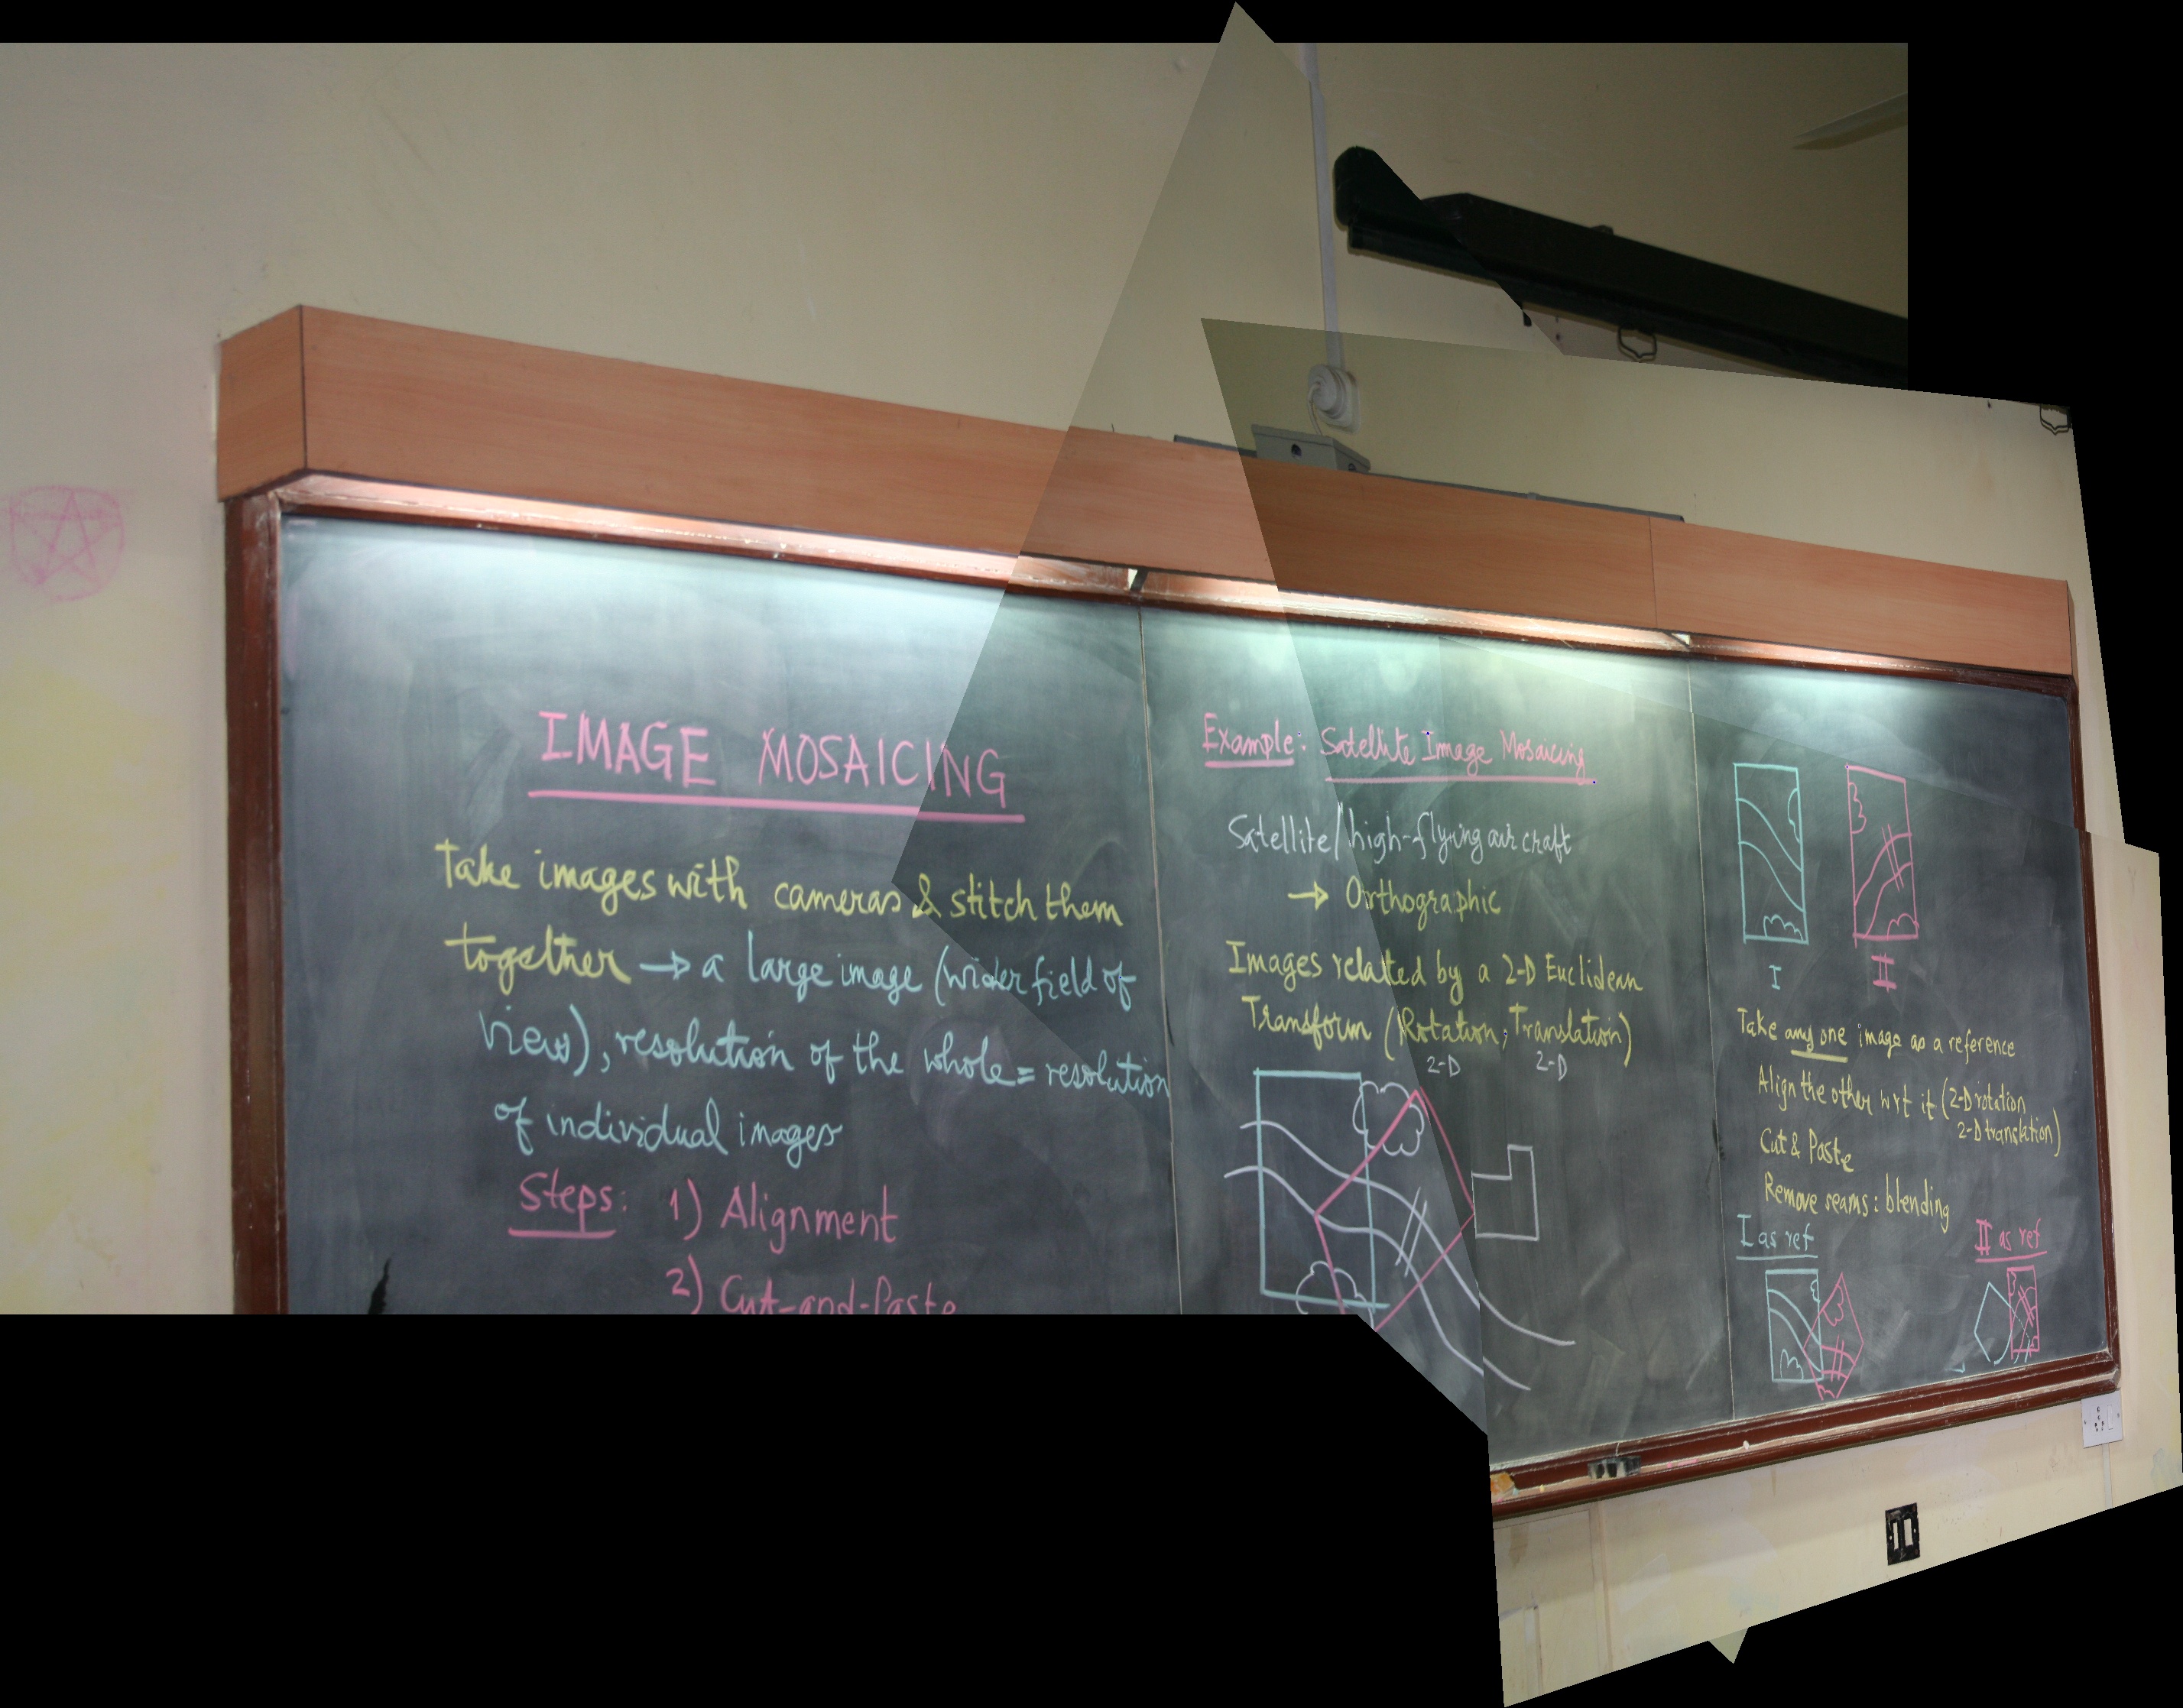 IMAGE MOSAICING
Take images with cameras & stitch them
together → a large image (wider field of
view), resolution of the whole = resolution
of individual images
Steps: 1) Alignment
2) Cut-and-Paste
Example: Satellite Image Mosaicing
Satellite/high-flying air craft
→ Orthographic
Images related by a 2-D Euclidean
Transform (Rotation, Translation)
2-D 2-D
I II
Take any one image as a reference
Align the other wrt it (2-D rotation
2-D translation)
Cut & Paste
Remove seams: blending
I as ref II as ref